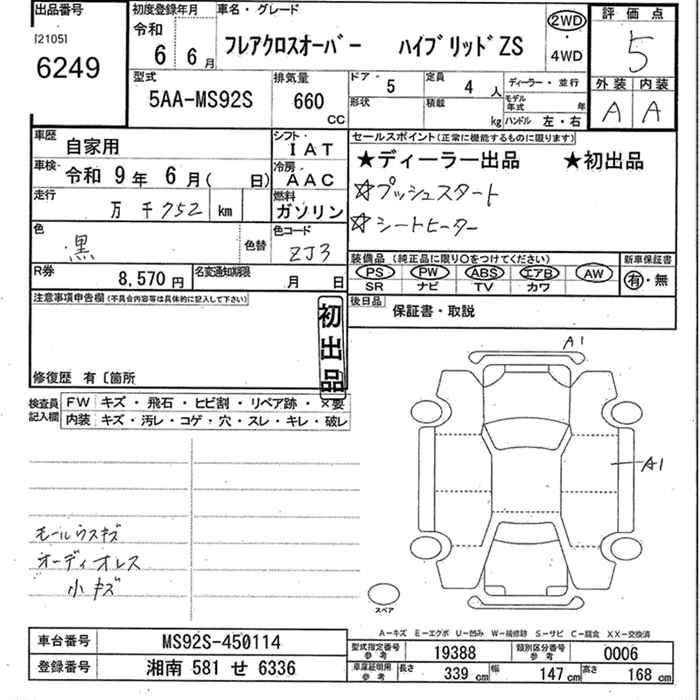 出品番号
[2105]
6249
初度登録年月
令和
6 6月
車名・グレード
フレアクロスオーバー ハイブリッドZS
2WD
・
4WD
評価点
5
外装 内装
A A
型式
5AA-MS92S
排気量
660
CC
ドア・ 5
形状
定員 4 人
積載 kg
ディーラー・並行
モデル年式 年
ハンドル 左・右
車歴 自家用
シフト・ IAT
車検・ 令和 9年 6月( 日)
冷房 AAC
走行
万千752 km
燃料 ガソリン
色
黒
色替
色コード
ZJ3
R券
8,570円
名変通知期限
月 日
セールスポイント(正常に機能するものに限ります)
★ディーラー出品 ★初出品
☆プッシュスタート
☆シートヒーター
装備品(純正品に限り○をつけてください)
PS PW ABS エアB AW
SR ナビ TV カワ
新車保証書
有・無
後日品
保証書・取説
注意事項申告欄(不具合内容等は具体的に記入して下さい)
初出品
修復歴 有〔箇所
検査員記入欄
FW キズ・飛石・ヒビ割・リペア跡・×要
内装 キズ・汚レ・コゲ・穴・スレ・キレ・破レ
A1
A1
モールウスキズ
オーディオレス
小キズ
スペア
A-キズ E-エクボ U-凹み W-補修跡 S-サビ C-腐食 XX-交換済
車台番号 MS92S-450114
登録番号 湘南 581 せ 6336
型式指定番号 参考 19388
類別区分番号 参考 0006
車庫証明用 参考 長さ 339cm 幅 147cm 高さ 168cm